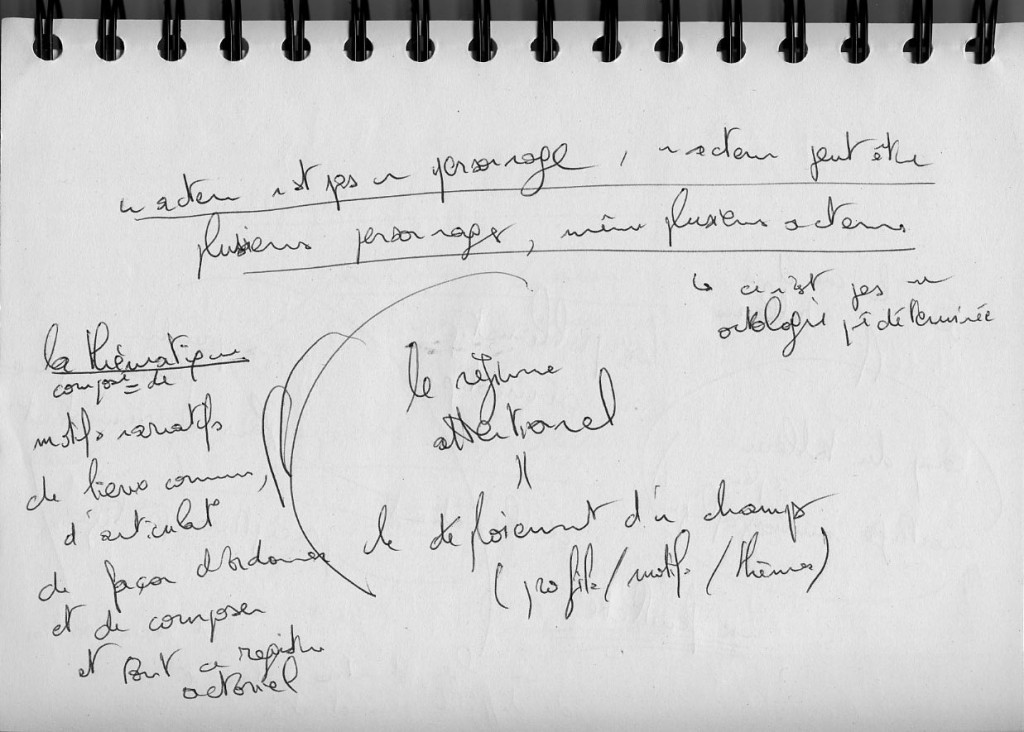 un acteur n'est pas un personnage, un acteur peut être
plusieurs personnages, même plusieurs acteurs
↳ ce n'est pas un
ontologie prédéterminée
la thématique
composé = de
motifs narratifs
de lieux communs,
d'articulat
de façon d'ordonner
et de composer
et tout ce registre
actoriel
le régime
attentionnel
=
le déploiement d'un champ
(profils/motifs/thèmes)